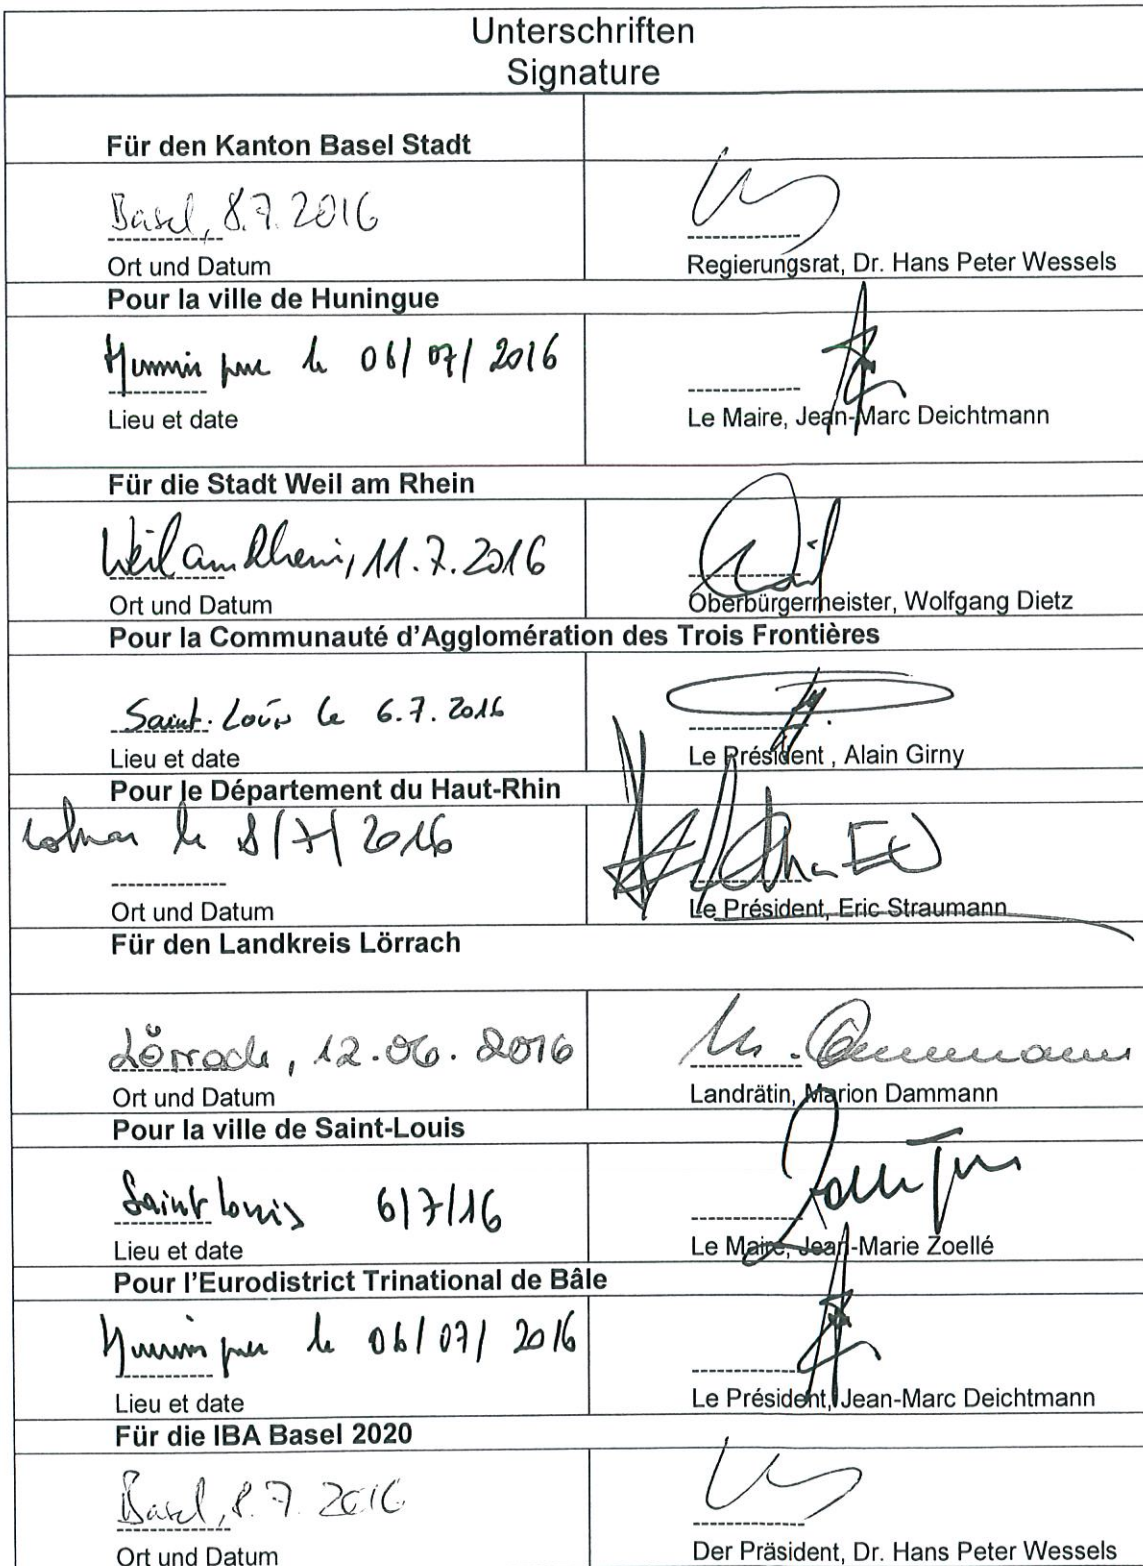 Unterschriften
Signature
Für den Kanton Basel Stadt
Basel, 8.7.2016
Ort und Datum
Regierungsrat, Dr. Hans Peter Wessels
Pour la ville de Huningue
Huningue le 06/07/2016
Lieu et date
Le Maire, Jean-Marc Deichtmann
Für die Stadt Weil am Rhein
Weil am Rhein, 11.7.2016
Ort und Datum
Oberbürgermeister, Wolfgang Dietz
Pour la Communauté d'Agglomération des Trois Frontières
Saint-Louis le 6.7.2016
Lieu et date
Le Président , Alain Girny
Pour le Département du Haut-Rhin
Colmar le 8/7/2016
Ort und Datum
Le Président, Eric Straumann
Für den Landkreis Lörrach
Lörrach, 12.06.2016
M. Dammann
Ort und Datum
Landrätin, Marion Dammann
Pour la ville de Saint-Louis
Saint Louis 6/7/16
Lieu et date
Le Maire, Jean-Marie Zoellé
Pour l'Eurodistrict Trinational de Bâle
Huningue le 06/07/2016
Lieu et date
Le Président, Jean-Marc Deichtmann
Für die IBA Basel 2020
Basel, 8.7.2016
Ort und Datum
Der Präsident, Dr. Hans Peter Wessels